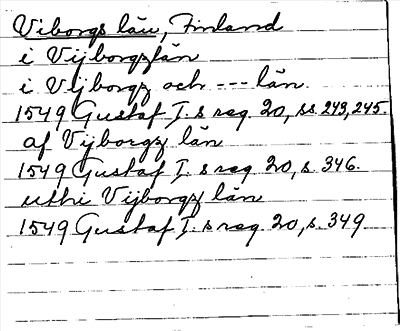 Viborgs län, Finland
i Vijborgzlän
i Vijborgz och --- län.
1549 Gustaf I.s reg. 20, ss. 243, 245.
af Vijborgz län
1549 Gustaf I. s reg. 20, s. 346.
uthi Vijborgz län
1549 Gustaf I. s reg. 20, s. 349